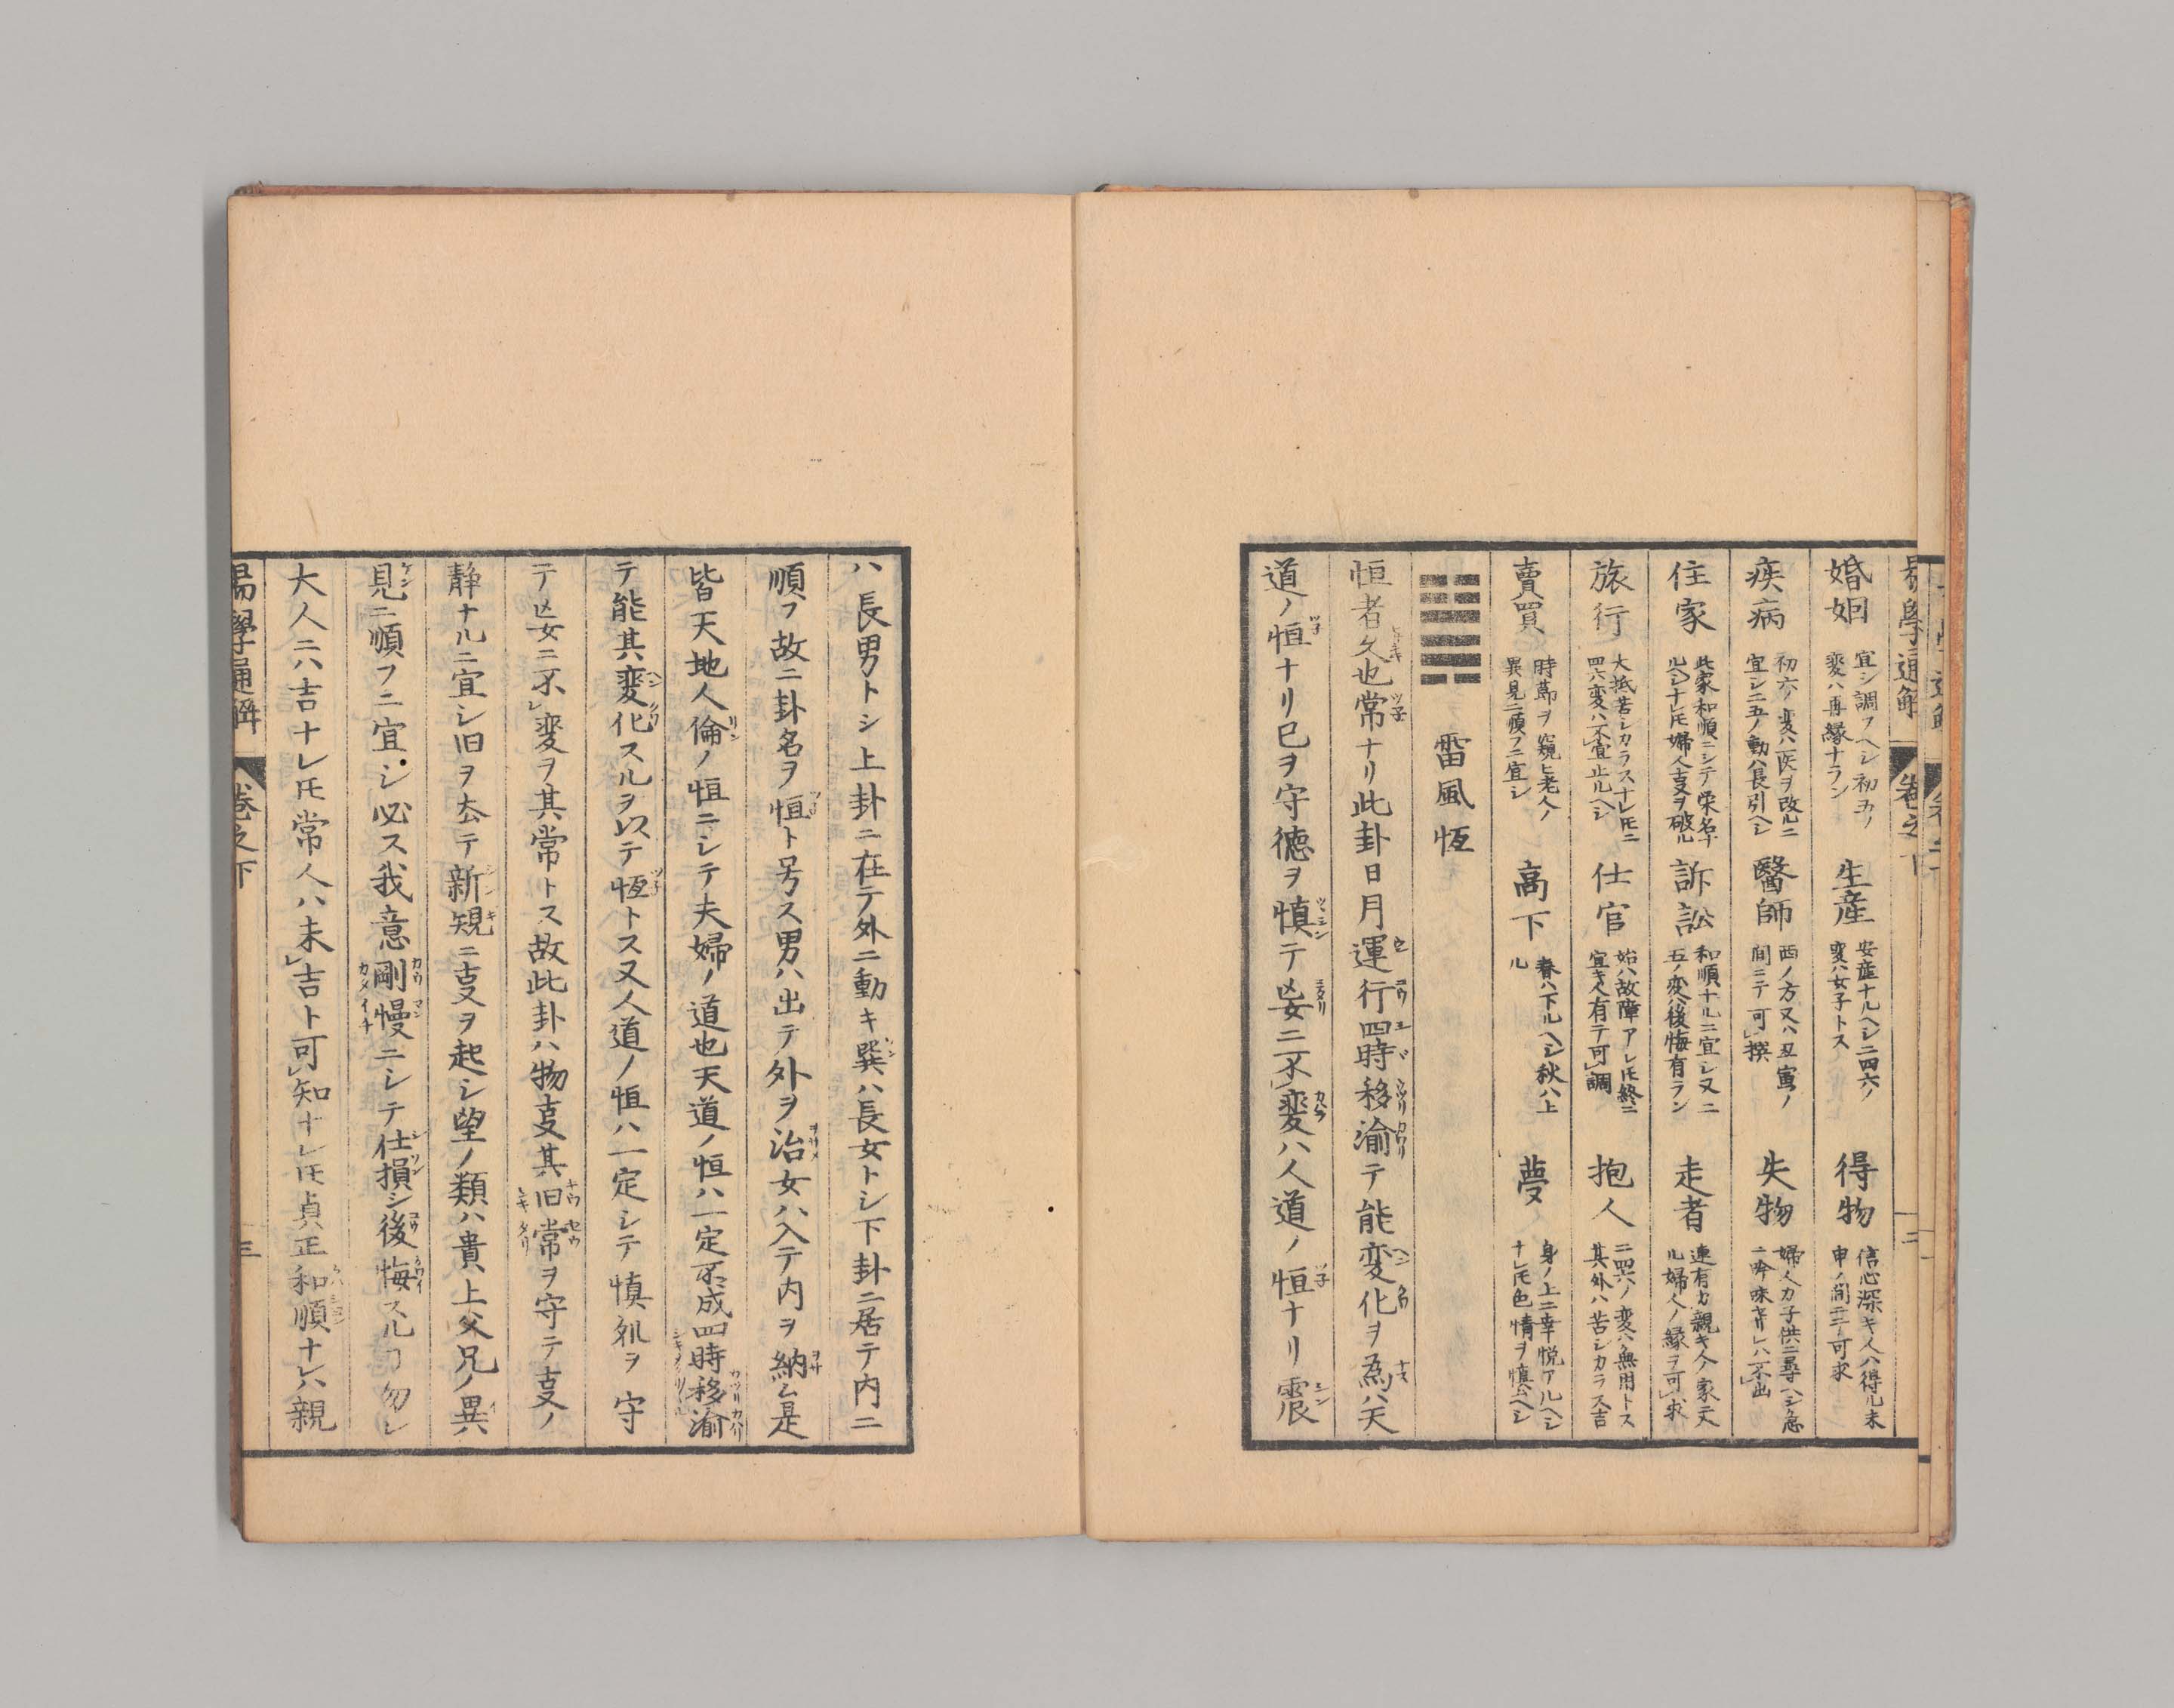 易學通解 卷之下 二
婚姻 宜シ調フヘシ初五ノ
変ハ再縁ナラン
生産 安産ナルヘシ二四六ノ
変ハ女子トス
得物 信心深キ人ハ得ル未
申ノ間ニ可求
疾病 初六ノ変ハ医ヲ改ルニ
宜シ二五ノ動ハ長引ヘシ
醫師 西ノ方又ハ丑寅ノ
間ニテ可撰
失物 婦人カ子供ニ尋ヘシ急
ニ吟味ナケレハ不出
住家 此家和順ニシテ栄名ナ
ルヘシナレ𪜈婦人叓ヲ破ル
訴訟 和順ナルニ宜シ又二
五ノ変ハ後悔有ラン
走者 連有カ親キ人ノ家ニ
ル婦人ノ縁ヲ可求
旅行 大抵苦シカラスナレ𪜈二
四六変ハ不宜止ルヘシ
仕官 始ハ故障アレ𪜈終ニ
宜キ人有テ可調
抱人 二四六ノ変ハ無用トス
其外ハ苦シカラス吉
賣買 時莭ヲ窺ヒ老人ノ
異見ニ順フニ宜シ
高下 春ハ下ルヘシ秋ハ上
ル
夢 身ノ上ニ幸悦アルヘシ
ナレ𪜈色情ヲ慎ムヘシ
雷風恆
恒者久也常ナリ此卦日月運行四時移渝テ能変化ヲ為ハ天
道ノ恒ナリ己ヲ守徳ヲ慎テ妄ニ不変ハ人道ノ恒ナリ震
ハ長男トシ上卦ニ在テ外ニ動キ巽ハ長女トシ下卦ニ居テ内ニ
順フ故ニ卦名ヲ恒ト号ス男ハ出テ外ヲ治女ハ入テ内ヲ納ム是
皆天地人倫ノ恒ニシテ夫婦ノ道也天道ノ恒ハ一定不成四時移渝
テ能其変化スルヲ以テ恆トス又人道ノ恒ハ一定シテ慎勤ヲ守
テ妄ニ不変ヲ其常トス故此卦ハ物叓其旧常ヲ守テ叓ノ
静ナルニ宜シ旧ヲ厺テ新規ニ叓ヲ起シ望ノ類ハ貴上父兄ノ異
見ニ順フニ宜シ必ス我意剛慢ニシテ仕損シ後悔スルヿ勿レ
大人ニハ吉ナレ𪜈常人ハ未吉ト可知ナレ𪜈貞正和順ナレハ親
易學通解 卷之下 三